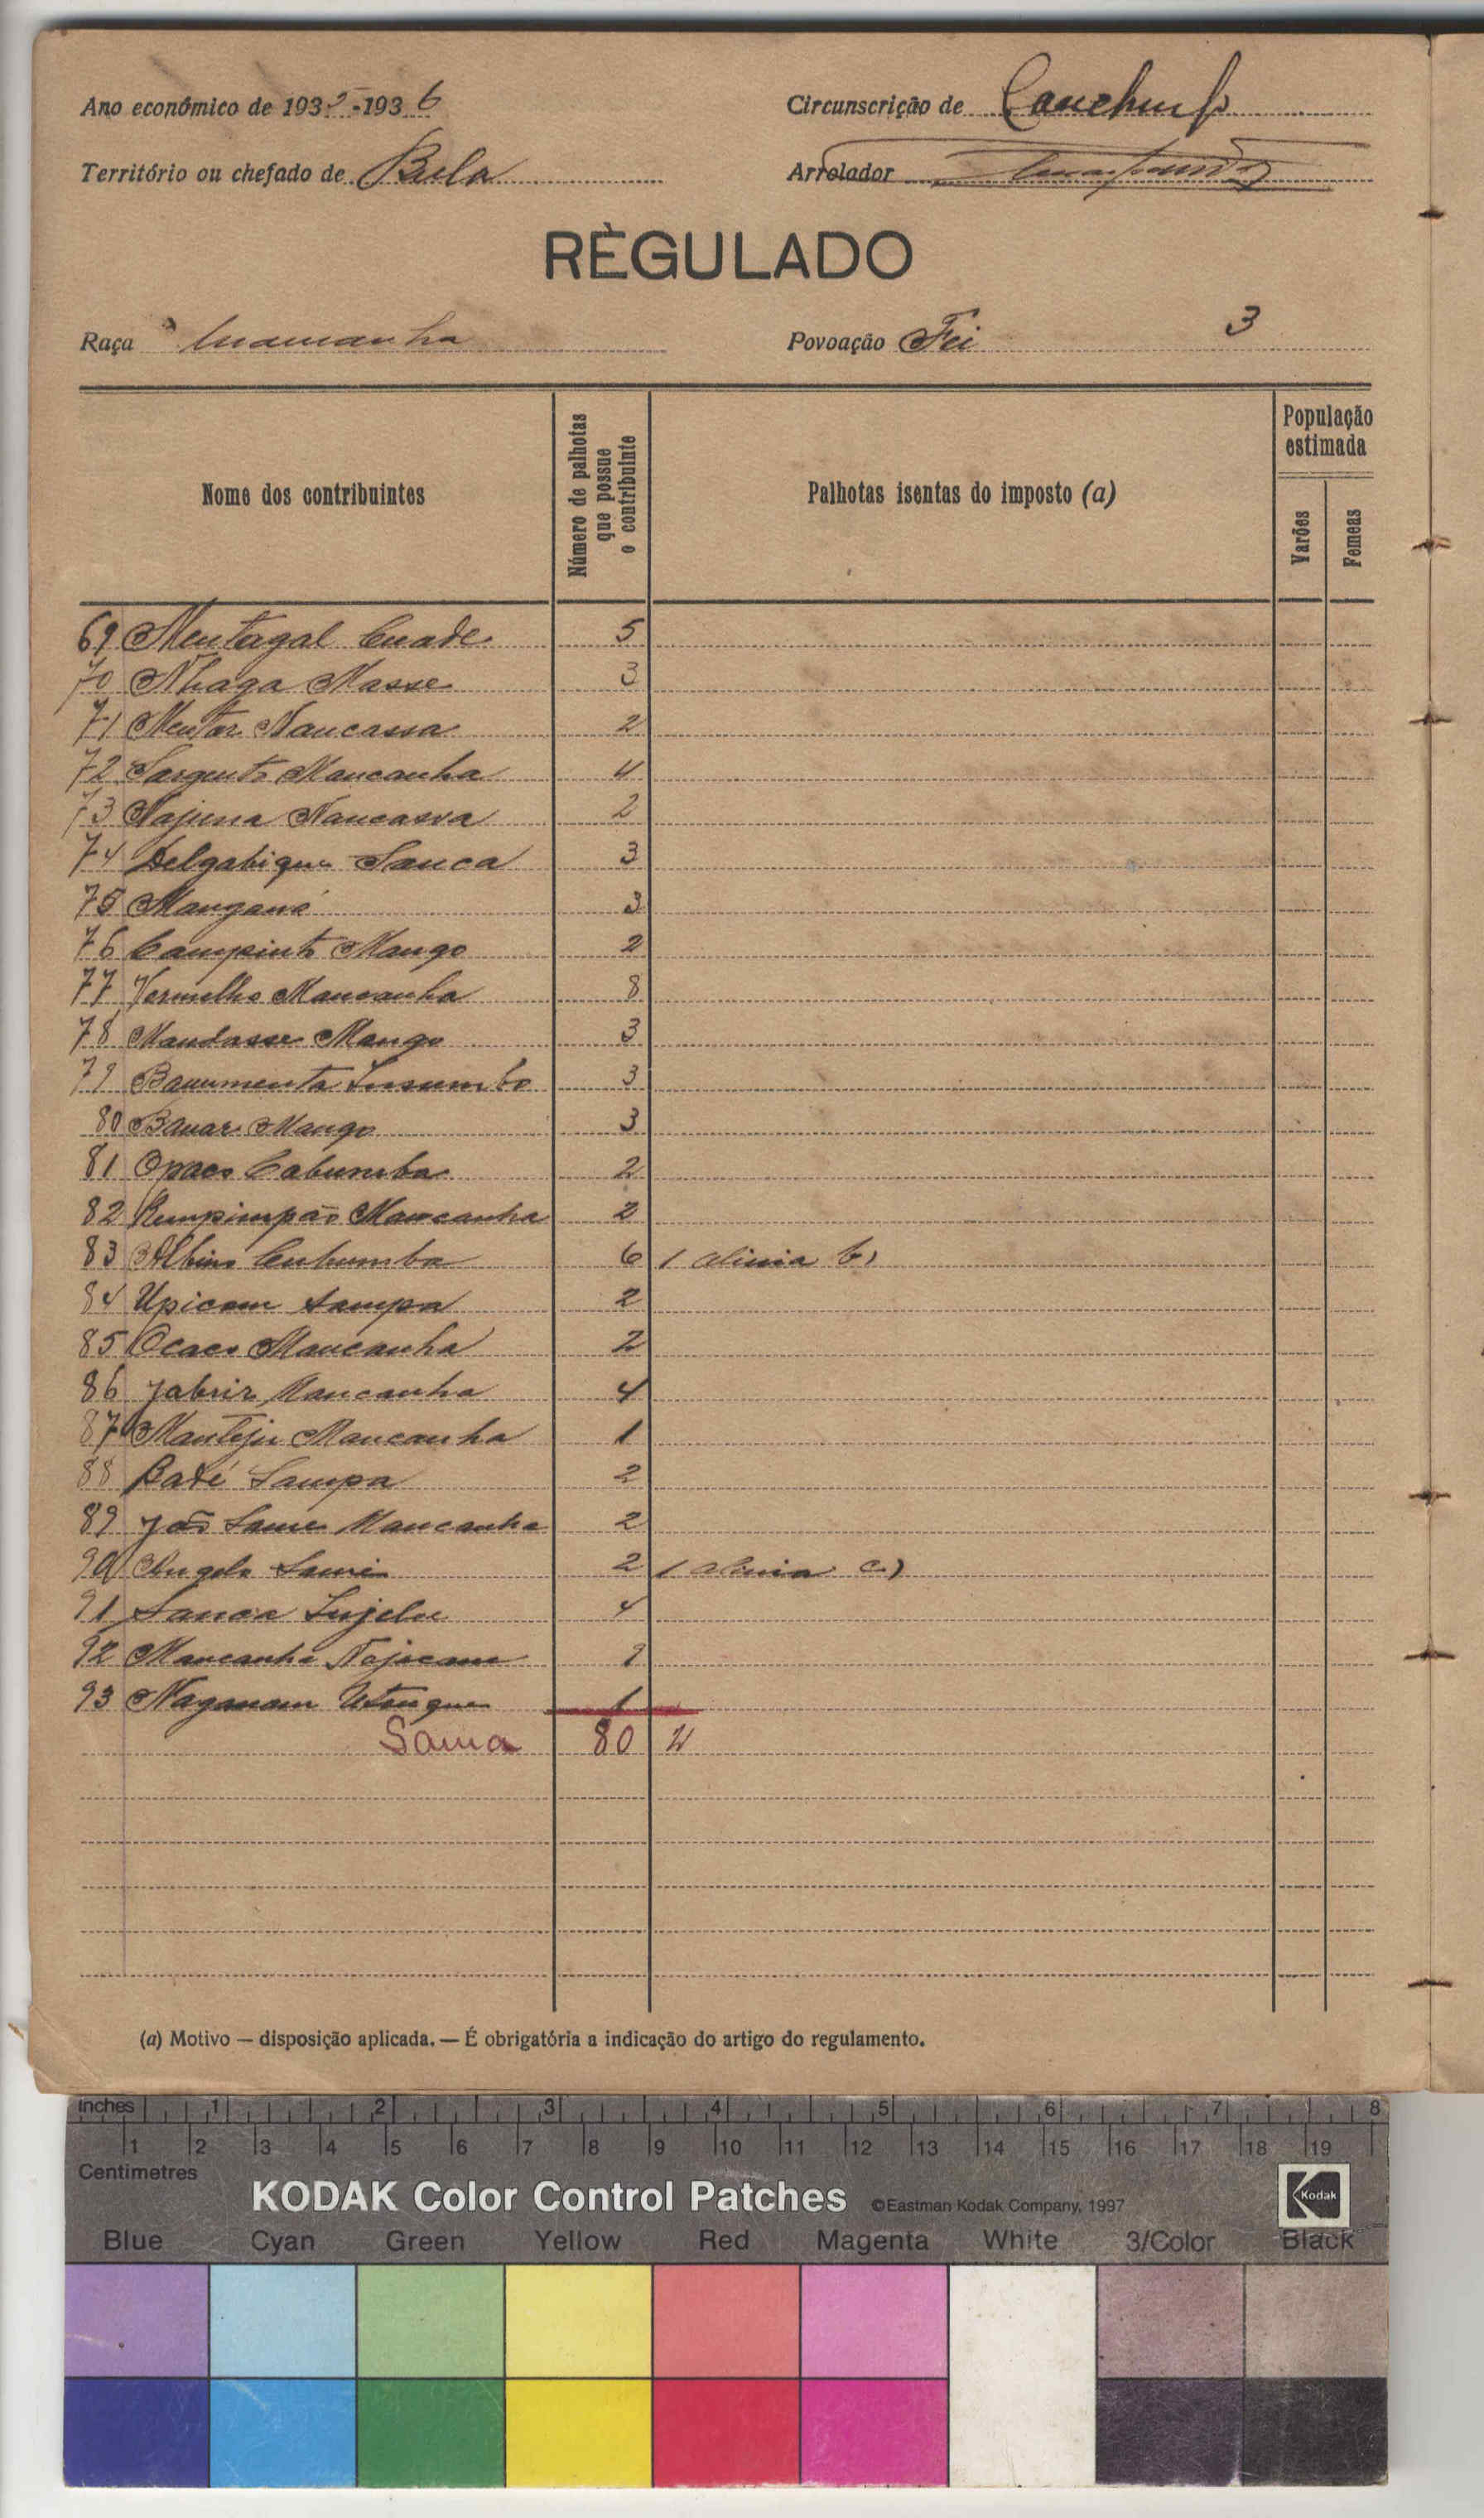 Ano económico de 1935-1936
Circunscrição de Canchungo
Território ou chefado de Bula
Arrolador
RÈGULADO
Raça Mancanha
Povoação Fei 3
Nome dos contribuintes
Número de palhotas que possue o contribuinte
Palhotas isentas do imposto (a)
População estimada
Varões
Femeas
69 Mentagal Cuade 5
70 Nhaga Nasse 3
71 Mentar Naucassa 2
72 Sargento Mancanha 4
73 Najuna Naucassa 2
74 Delgabique Sanca 3
75 Mangané 3
76 Campinto Mango 2
77 Vermelho Mancanha 8
78 Mandasse Mango 3
79 3
80 Banar Mango 3
81 Opaco Cabumba 2
82 Mancanha 2
83 Albino Cubumba 6 1 alinia b)
84 Upicam Sampa 2
85 Ocaco Mancanha 2
86 Jabriz Mancanha 4
87 Manteju Mancanha 1
88 Badé Sampa 2
89 João Same Mancanha 2
90 Angelo Sami 2 1 alinia c)
91 Sanca 4
92 Mancanha
93 1
Soma 80 2
(a) Motivo — disposição aplicada. — É obrigatória a indicação do artigo do regulamento.
Inches 1 2 3 4 5 6 7 8
1 2 3 4 5 6 7 8 9 10 11 12 13 14 15 16 17 18 19
Centimetres
KODAK Color Control Patches ©Eastman Kodak Company, 1997 Kodak
Blue Cyan Green Yellow Red Magenta White 3/Color Black